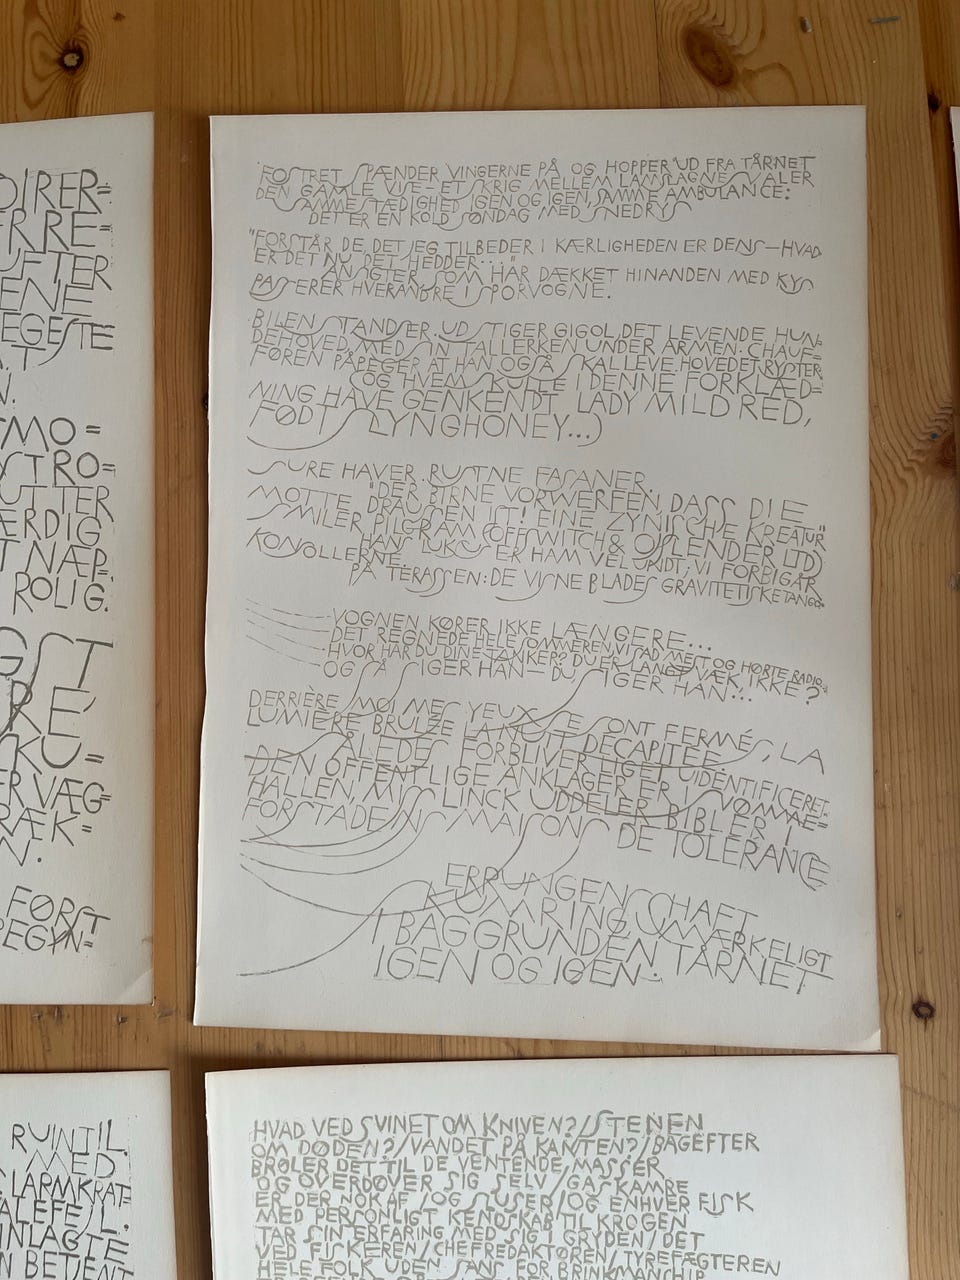 FOSTRET SPÆNDER VINGERNE PÅ OG HOPPER UD FRA TÅRNET
DEN GAMLE VISE – ET SKRIG MELLEM LAMSLAGNE SVALER
SAMME STÆDIGHED IGEN OG IGEN, SAMME AMBULANCE:
DET ER EN KOLD SØNDAG MED SNEDRYS
"FORSTÅR DE, DET JEG TILBEDER I KÆRLIGHEDEN ER DENS – HVAD
ER DET NU DET HEDDER...."
ANSIGTER, SOM HAR DÆKKET HINANDEN MED KYS
PASSERER HVERANDRE I SPORVOGNE.
BILEN STANDSER. UD STIGER GIGOL, DET LEVENDE HUN=
DEHOVED, MED SIN TALLERKEN UNDER ARMEN. CHAUF=
FØREN PÅPEGER AT HAN OGSÅ SKAL LEVE. HOVEDET RYSTER
OG HVEM SKULLE I DENNE FORKLÆD=
NING HAVE GENKENDT LADY MILDRED,
FØDT SLYNGHONEY...)
SURE HAVER. RUSTNE FASANER.
"DER BIRNE VORWERFEN, DASS DIE
MOTTE DRAUSSEN IST! EINE ZYNISCHE KREATUR"
SMILER PILGRAM (OFFSWITCH & OJSLENDER LTD)
HANS LUKSUS ER HAM VEL UNDT, VI FORBIGÅR
KONSOLLERNE.
PÅ TERASSEN: DE VISNE BLADES GRAVITETISKE TANGO.
VOGNEN KØRER IKKE LÆNGERE...
DET REGNEDE HELE SOMMEREN, VI SAD MEST OG HØRTE RADIO.
HVOR HAR DU DINE TANKER? DU ER LANGT VÆK, IKKE?
OG SÅ SIGER HAN – DU SIGER HAN...
DERRIÈRE MOI MES YEUX SE SONT FERMÉS, LA
LUMIÈRE BRULÉE LA NUIT DÉCAPITÉE
SÅLEDES FORBLIVER LIGET UIDENTIFICERET.
DEN OFFENTLIGE ANKLAGER ER I SVØMME=
HALLEN, MISS LINCK UDDELER BIBLER I
FORSTADENS MAISONS DE TOLERANCE
ERRUNGENSCHAFT
RUMRING UMÆRKELIGT
I BAGGRUNDEN TÅRNET
IGEN OG IGEN.
DIRER=
ERRE
UFTER
ENE
EGESTE
N.
SMO=
STRO=
UTTER
ÆRDIG
T NÆP.
ROLIG.
GST
RE
SKU=
ERVÆG=
RÆK=
N.
FØRST
BEGYN=
RUINTIL
MED
LARMKRAT=
ALEFEJL.
INLAGTE
N BETJENT
HVAD VED SVINET OM KNIVEN?/STENEN
OM DØDEN?/VANDET PÅ KANTEN?/BAGEFTER
BRØLER DET TIL DE VENTENDE MASSER
OG OVERDØVER SIG SELV/GASKAMRE
ER DER NOK AF/OG SLUSER/OG ENHVER FISK
MED PERSONLIGT KENDSKAB TIL KROGEN
TAR SIN ERFARING MED SIG I GRYDEN/DET
VED FISKEREN/CHEFREDAKTØREN/TYREFÆGTEREN
HELE FOLK UDEN SANS FOR BRINKMANSHIP